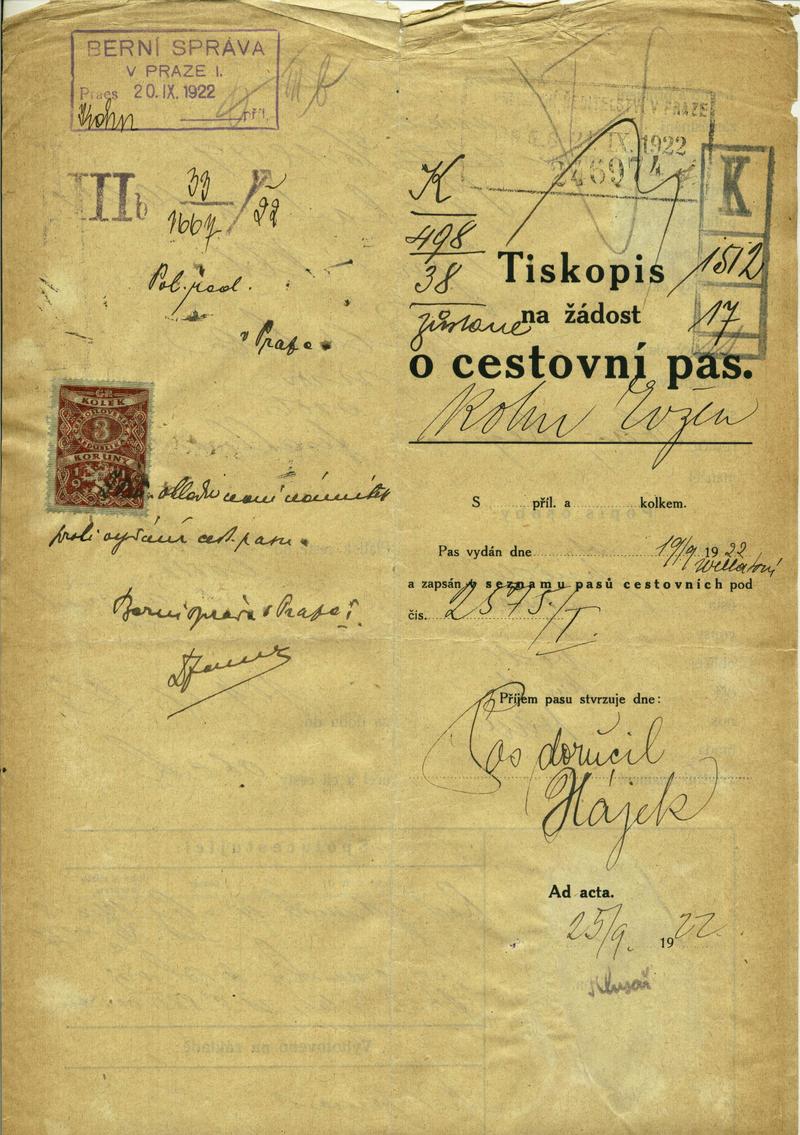 BERNÍ SPRÁVA
V PRAZE I.
Praes 20.IX.1922
Kohn příl.
IIIb 33/1667/22
Pol. řed.
v Praze
KOLEK
3
KORUNY
proti vydání cest. pasu.
Berní správa v Praze I.
V PRAZE
21. IX. 1922
246974
K
1512
17
K
498
38
zůstane
Tiskopis
na žádost
o cestovní pas.
Kohn Evžen
S příl. a kolkem.
Pas vydán dne 19/9 1922
a zapsán v seznamu pasů cestovních pod
čís. 2575/I.
Příjem pasu stvrzuje dne:
Pas doručil
Hájek
Ad acta.
25/9. 1922.